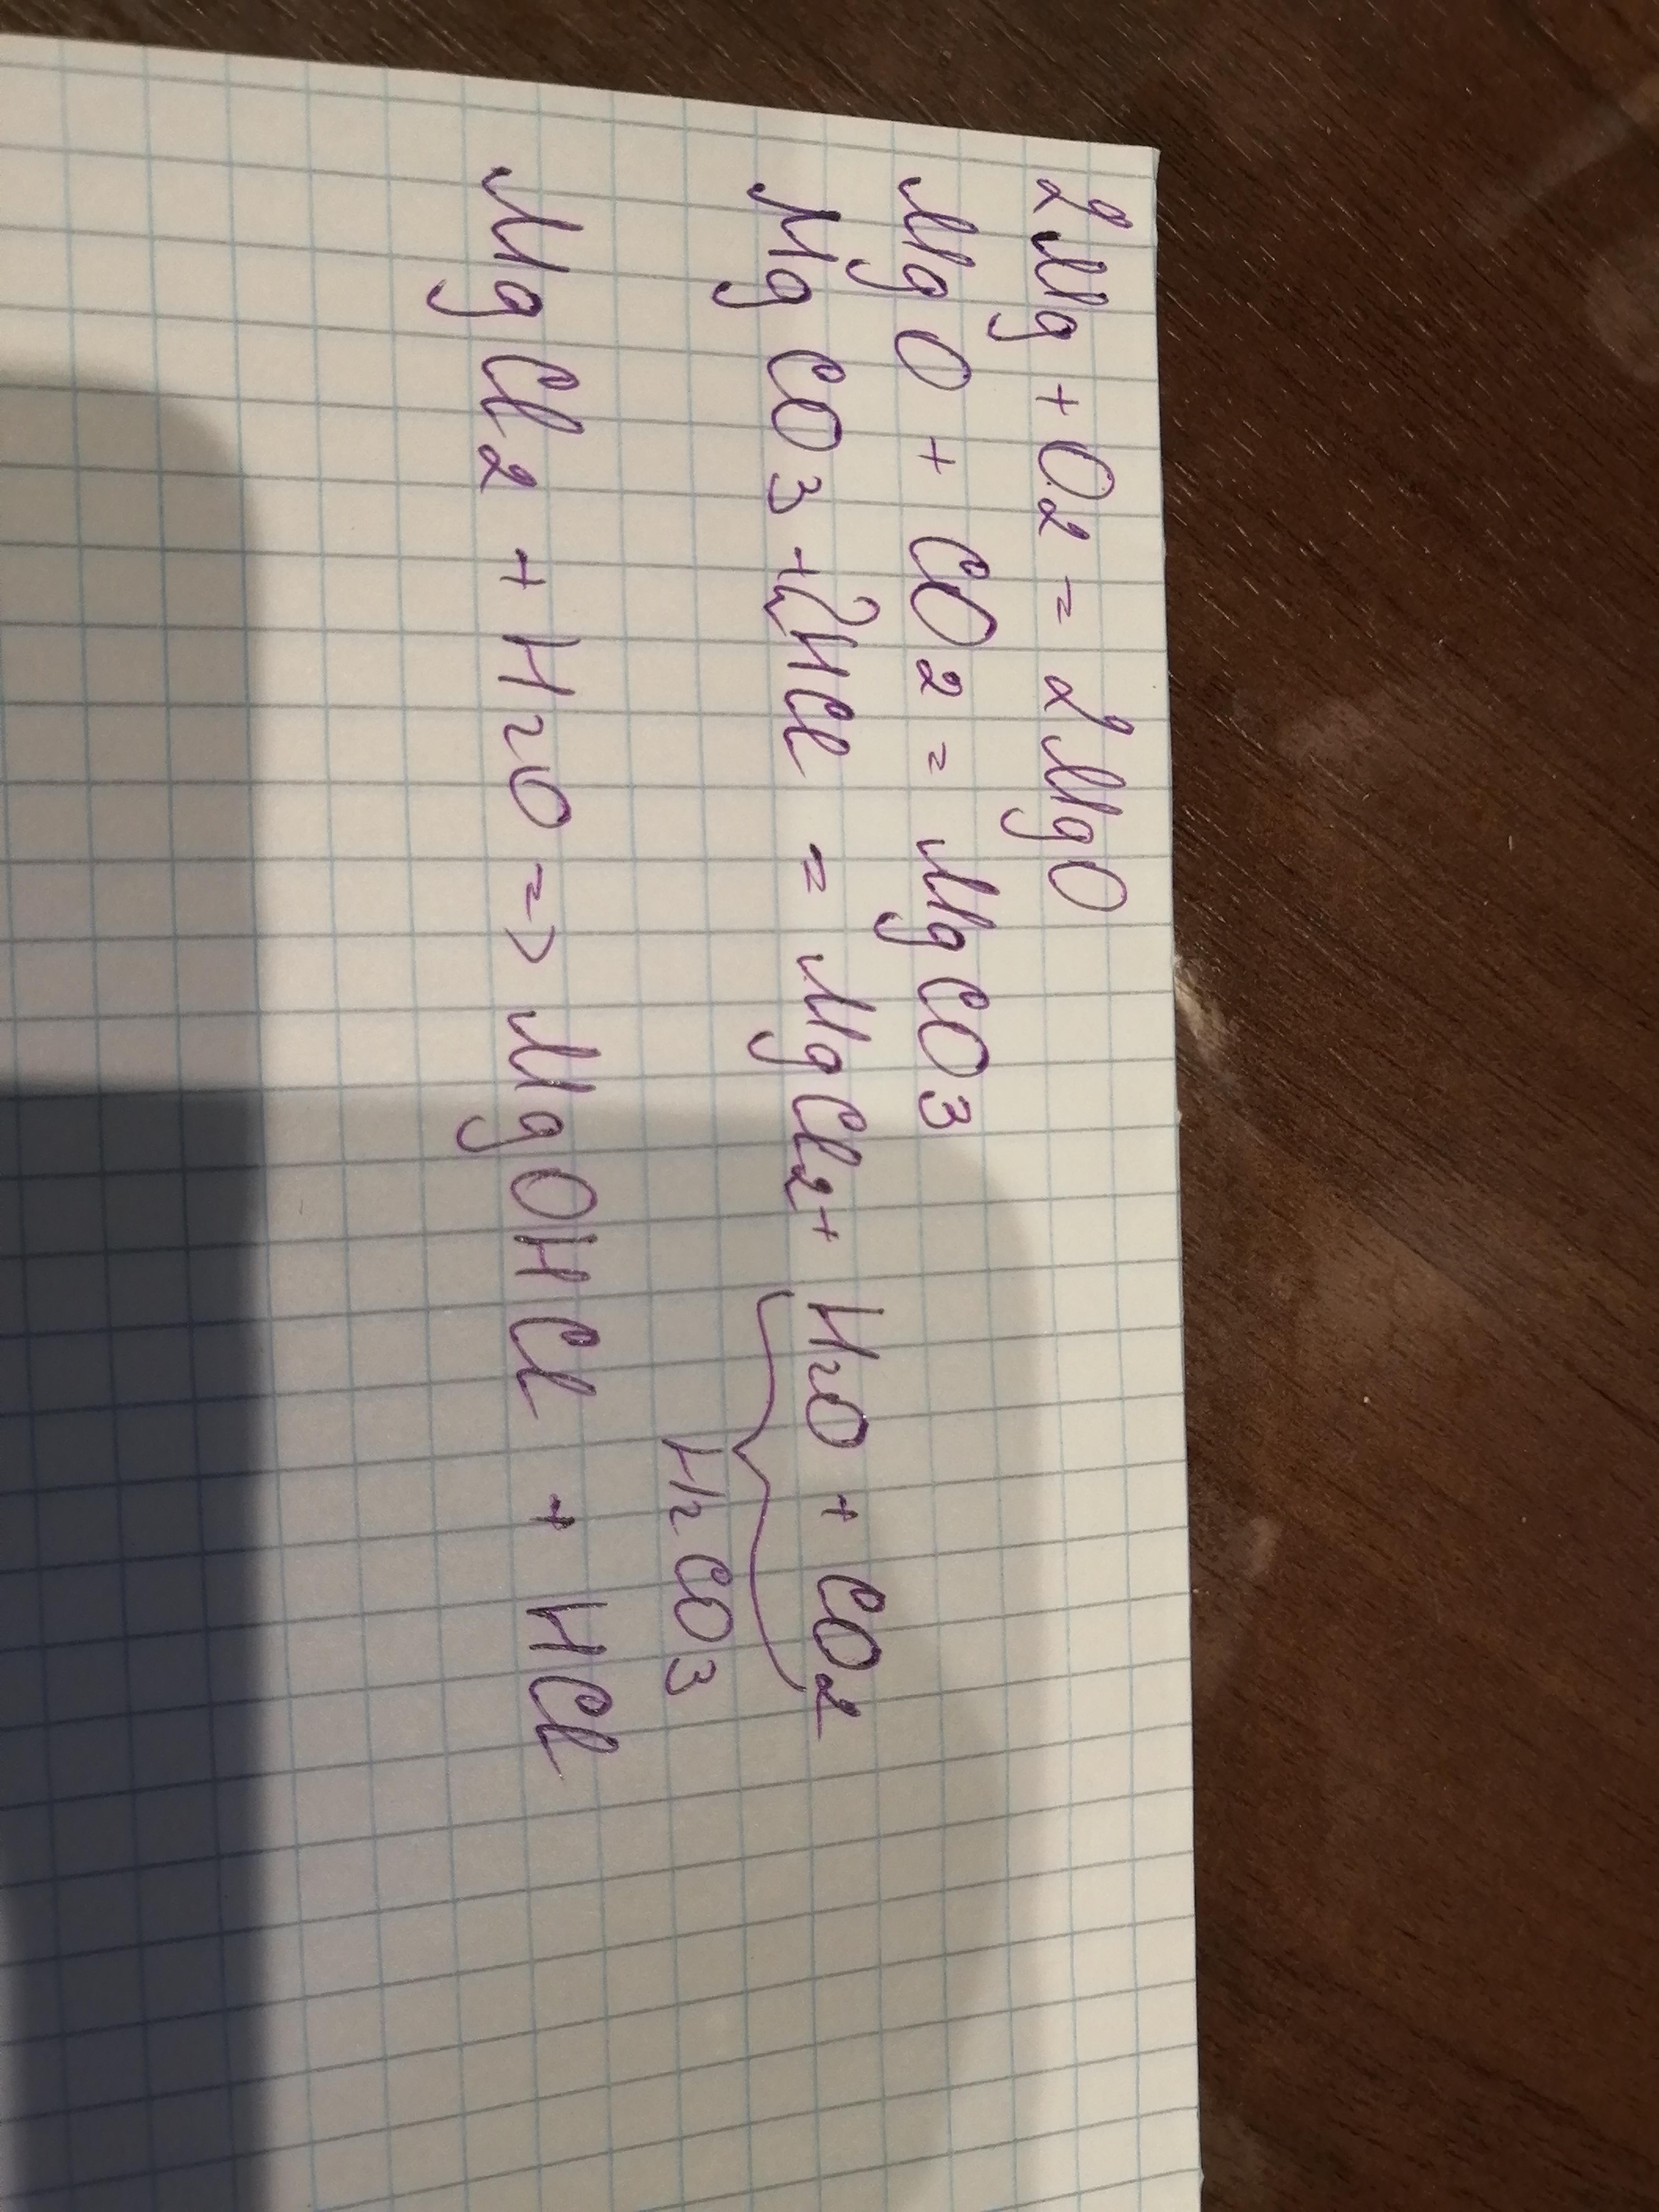 2Mg + O2 = 2MgO
MgO + CO2 = MgCO3
MgCO3 + 2HCl = MgCl2 + H2O + CO2
H2CO3
MgCl2 + H2O => MgOHCl + HCl